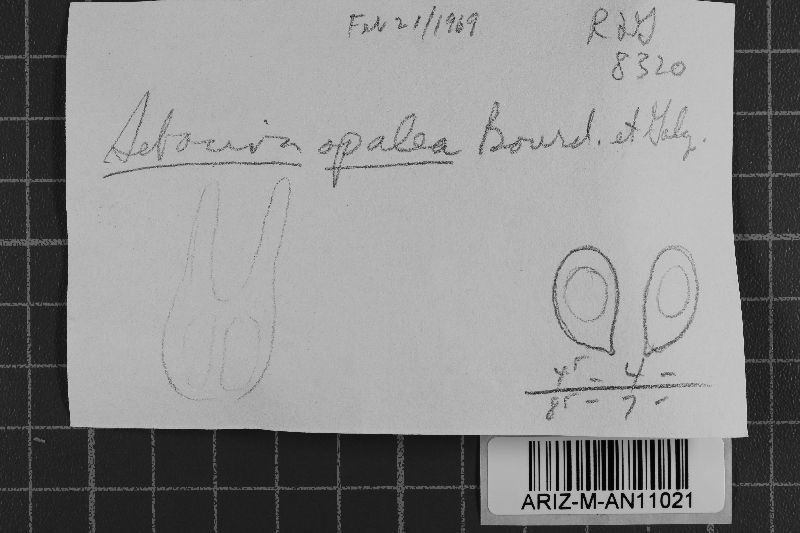 Feb 21/1969
RLG
8320
Sebacina opalea Bourd. et Galz.
45 - 4 -
85 - 7 -
ARIZ-M-AN11021